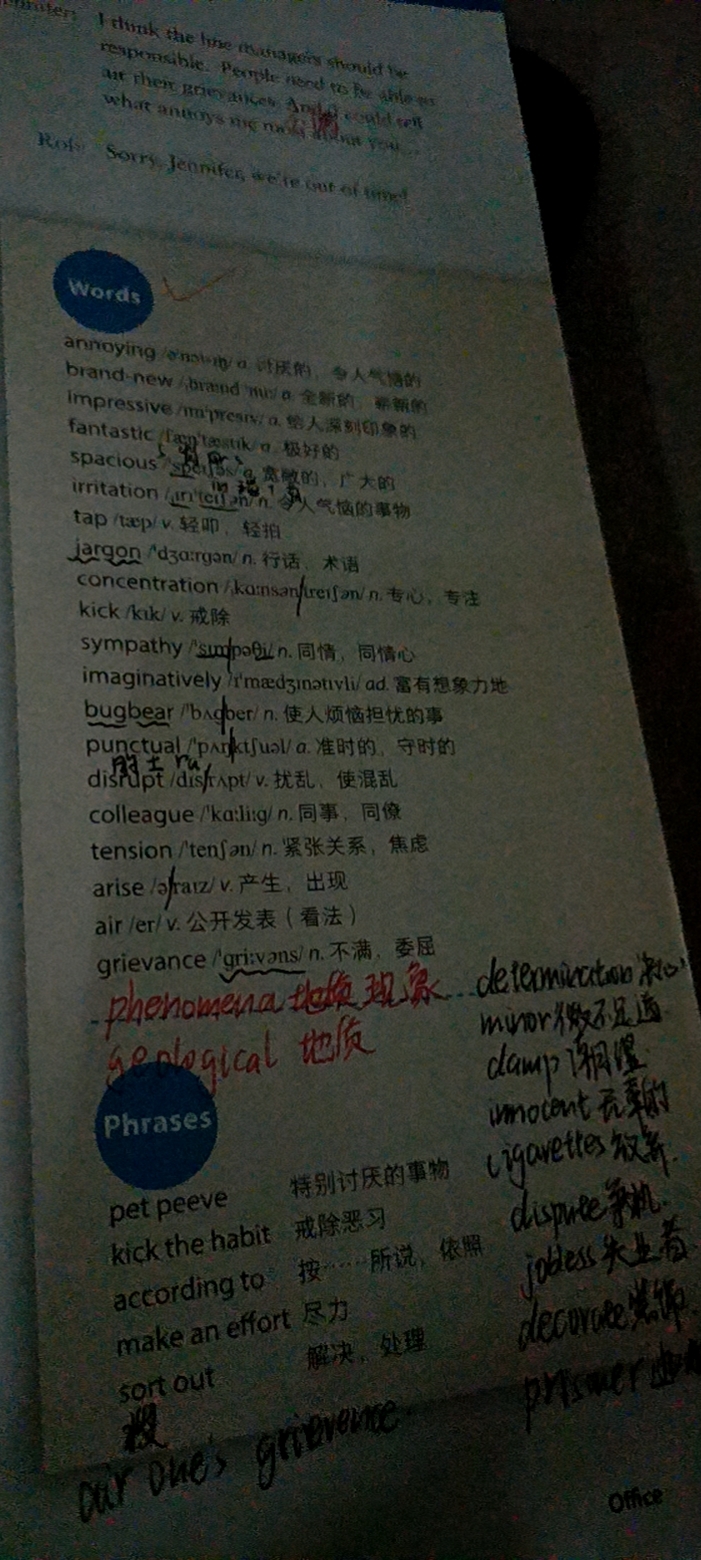 I think the line managers should be
responsible. People need to be able to
air their grievances. And I could tell
what annoys me most about you...
Rob: Sorry, Jennifer, we're out of time!
Words
annoying /əˈnɔɪɪŋ/ a. 讨厌的，令人气恼的
brand-new /ˌbrændˈnuː/ a. 全新的，崭新的
impressive /ɪmˈpresɪv/ a. 给人深刻印象的
fantastic /fænˈtæstɪk/ a. 极好的
spacious /ˈspeɪʃəs/ a. 宽敞的，广大的
irritation /ˌɪrɪˈteɪʃən/ n. 令人气恼的事物
tap /tæp/ v. 轻叩，轻拍
jargon /ˈdʒɑːrgən/ n. 行话，术语
concentration /ˌkɑːnsənˈtreɪʃən/ n. 专心，专注
kick /kɪk/ v. 戒除
sympathy /ˈsɪmpəθi/ n. 同情，同情心
imaginatively /ɪˈmædʒɪnətɪvli/ ad. 富有想象力地
bugbear /ˈbʌgber/ n. 使人烦恼担忧的事
punctual /ˈpʌŋktʃuəl/ a. 准时的，守时的
disrupt /dɪsˈrʌpt/ v. 扰乱，使混乱
colleague /ˈkɑːliːg/ n. 同事，同僚
tension /ˈtenʃən/ n. 紧张关系，焦虑
arise /əˈraɪz/ v. 产生，出现
air /er/ v. 公开发表（看法）
grievance /ˈgriːvəns/ n. 不满，委屈
phenomena 地质现象
geological 地质
determination 决心
minor 微不足道
damp 潮湿
innocent 无辜的
cigarettes
jobless 失业者
decorate 装饰
Phrases
pet peeve 特别讨厌的事物
kick the habit 戒除恶习
according to 按……所说，依照
make an effort 尽力
sort out 解决，处理
air one's grievence
Office